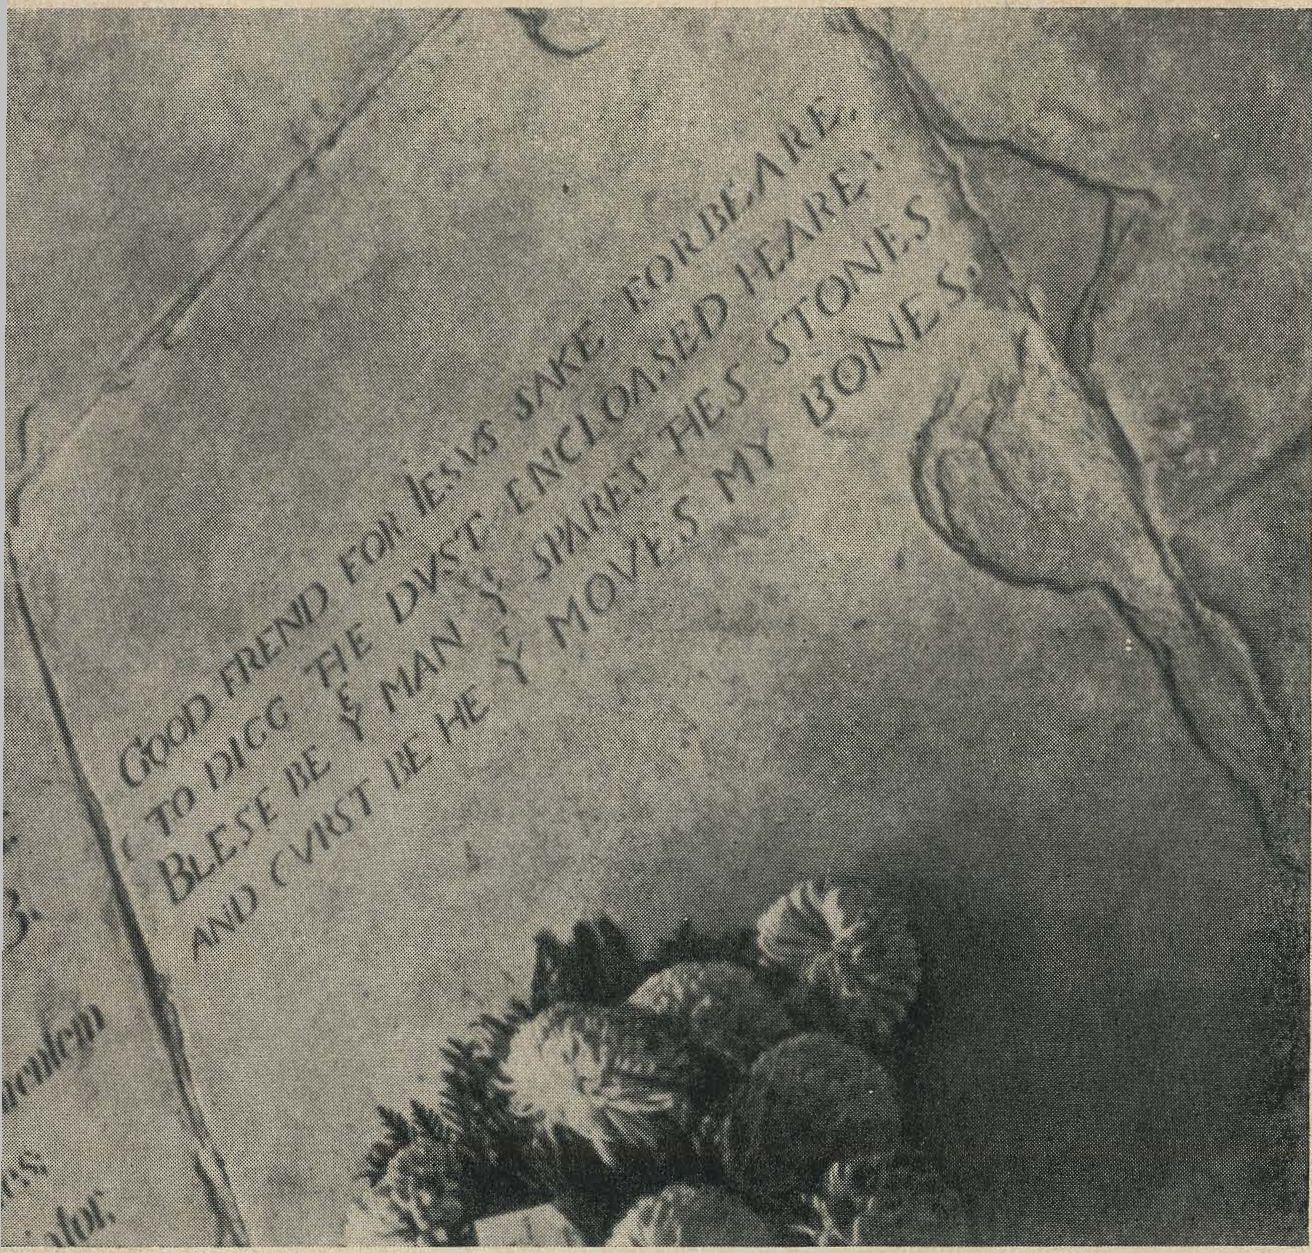 GOOD FREND FOR IESVS SAKE FORBEARE,
TO DIGG THE DVST ENCLOASED HEARE:
BLESE BE Yͤ MAN Yͭ SPARES THES STONES
AND CVRST BE HE Yͭ MOVES MY BONES.
3.